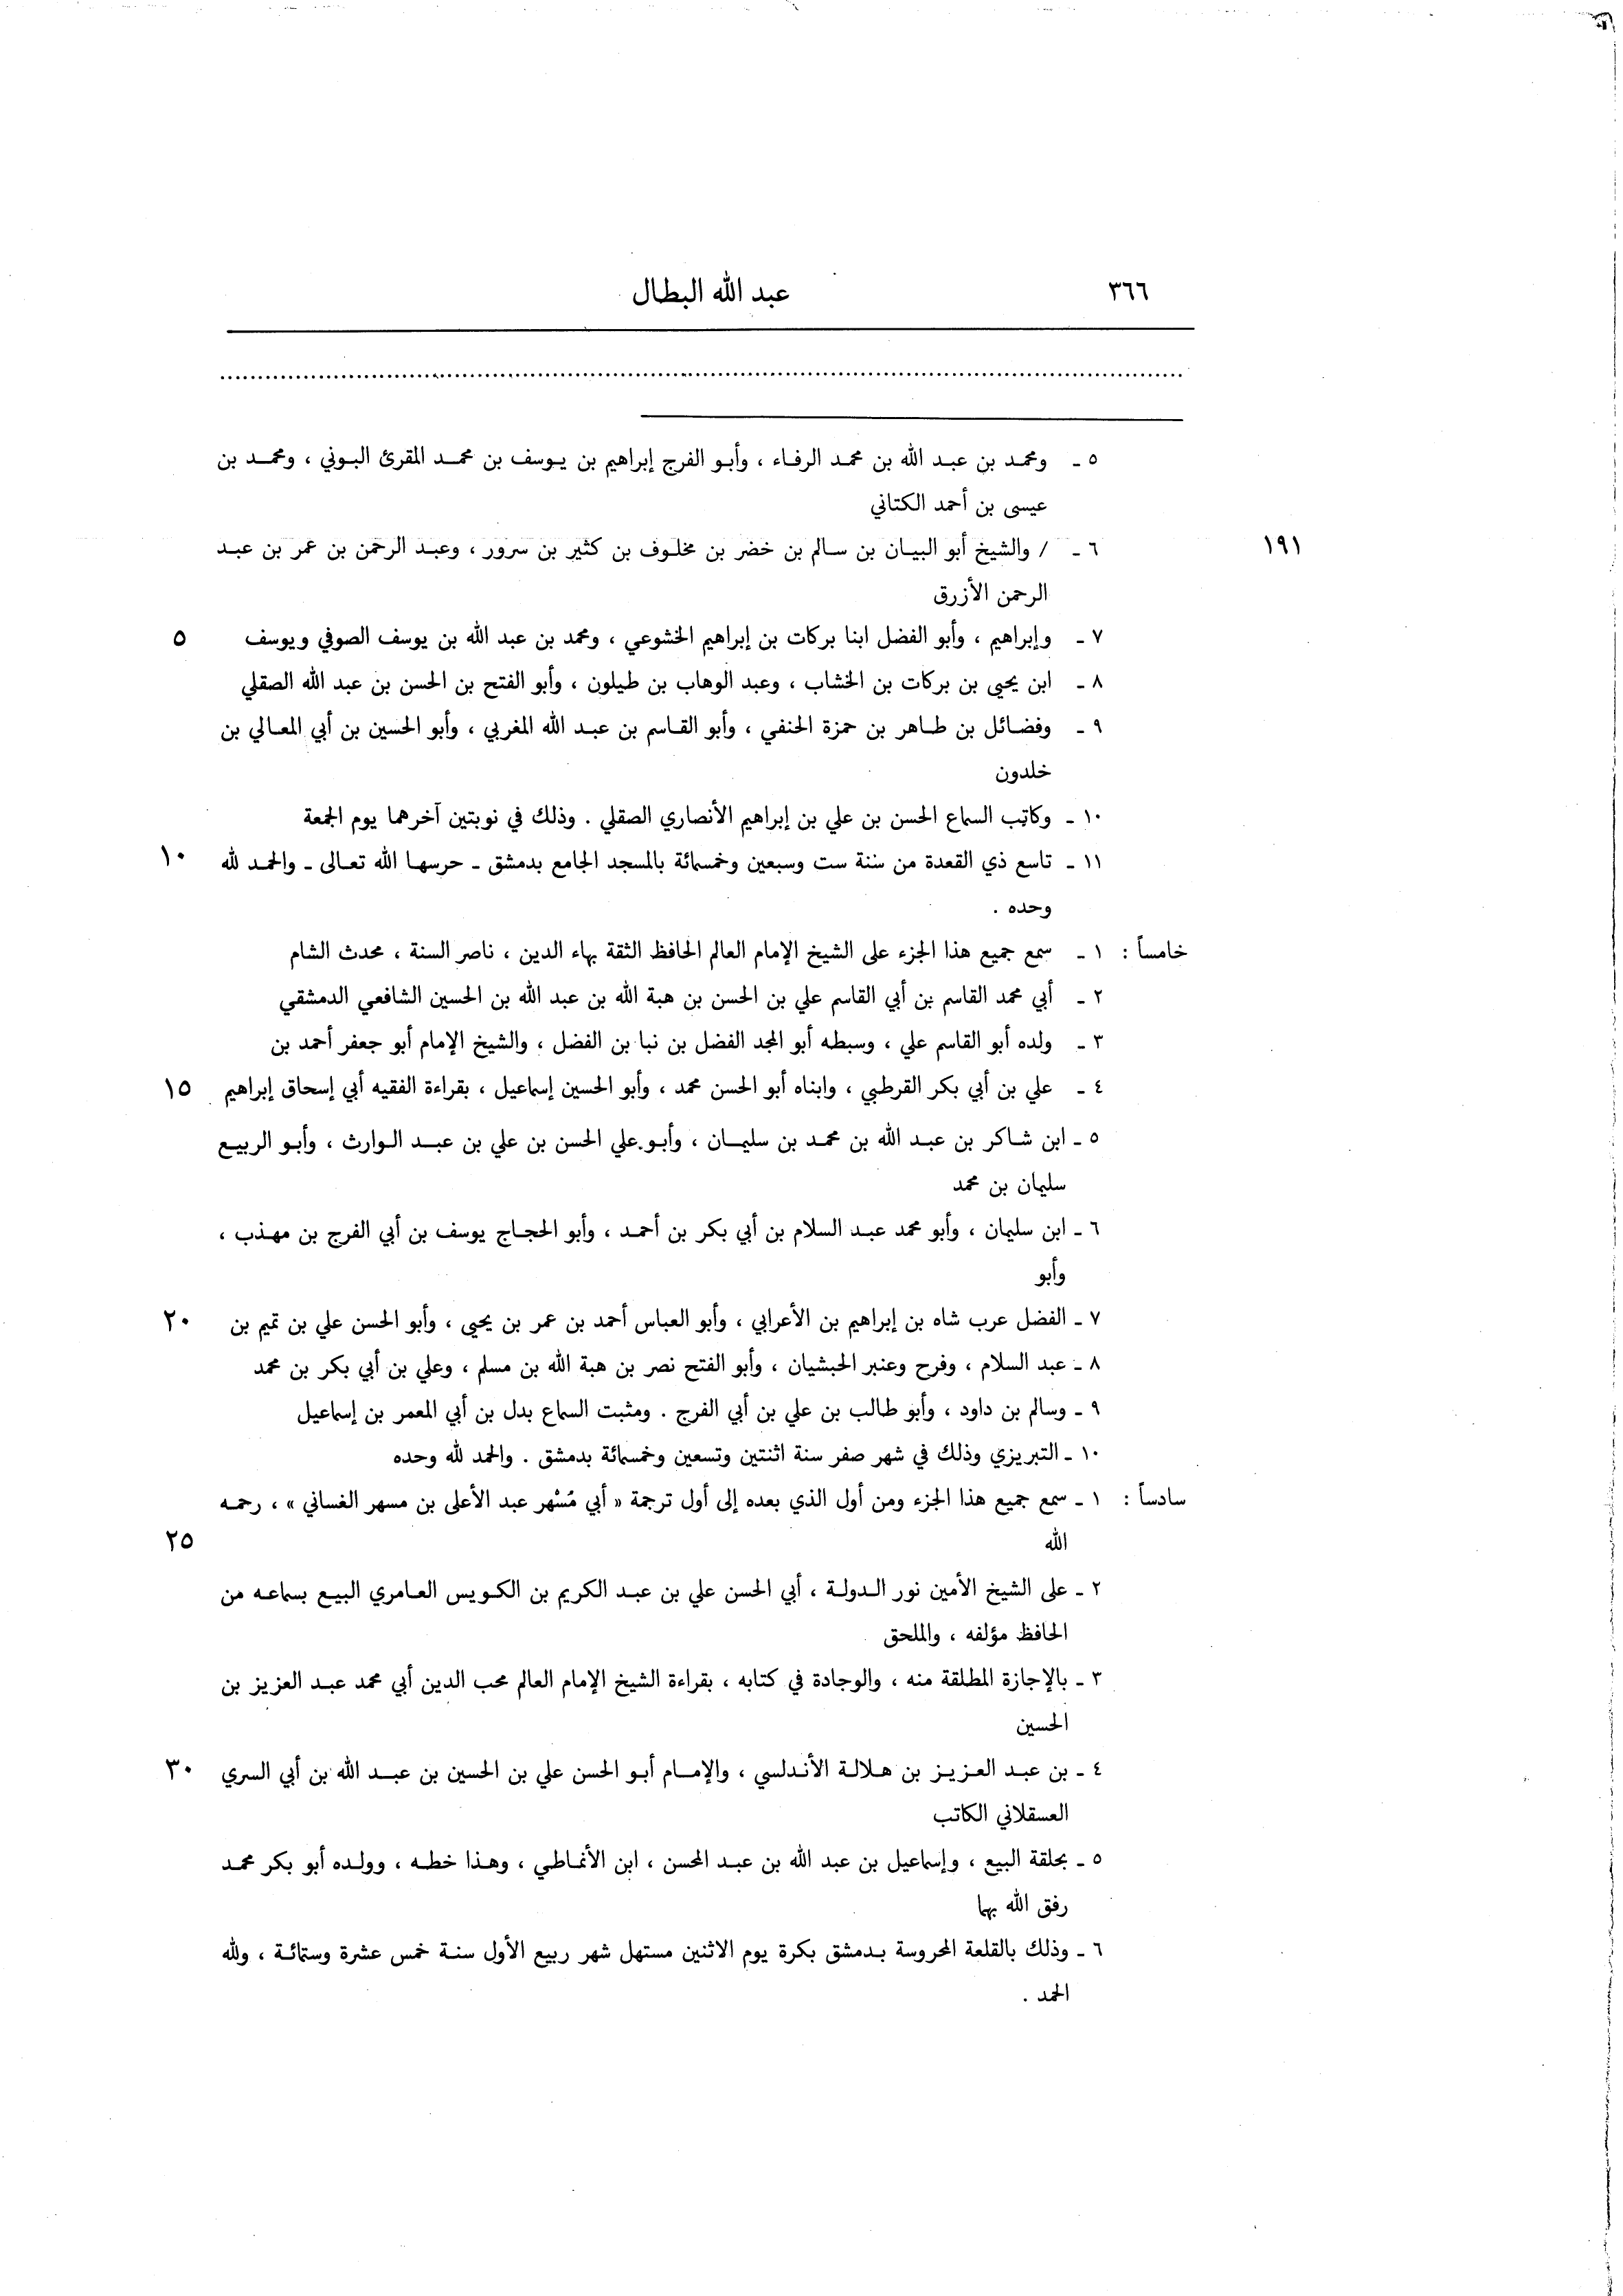 ٣٦٦
عبد الله البطال
٥ ـ ومحمد بن عبد الله بن محمد الرفاء ، وأبو الفرج إبراهيم بن يوسف بن محمد المقرئ البوني ، ومحمد بن
عيسى بن أحمد الكتاني
١٩١
٦ ـ / والشيخ أبو البيان بن سالم بن خضر بن مخلوف بن كثير بن سرور ، وعبد الرحمن بن عمر بن عبد
الرحمن الأزرق
٧ ـ وإبراهيم ، وأبو الفضل ابنا بركات بن إبراهيم الخشوعي ، ومحمد بن عبد الله بن يوسف الصوفي ويوسف ٥
٨ ـ ابن يحيى بن بركات بن الخشاب ، وعبد الوهاب بن طيلون ، وأبو الفتح بن الحسن بن عبد الله الصقلي
٩ ـ وفضائل بن طاهر بن حمزة الحنفي ، وأبو القاسم بن عبد الله المغربي ، وأبو الحسين بن أبي المعالي بن
خلدون
١٠ ـ وكاتب السماع الحسن بن علي بن إبراهيم الأنصاري الصقلي . وذلك في نوبتين آخرهما يوم الجمعة
١١ ـ تاسع ذي القعدة من سنة ست وسبعين وخمسمائة بالمسجد الجامع بدمشق ـ حرسها الله تعالى ـ والحمد لله ١٠
وحده .
خامساً : ١ ـ سمع جميع هذا الجزء على الشيخ الإمام العالم الحافظ الثقة بهاء الدين ، ناصر السنة ، محدث الشام
٢ ـ أبي محمد القاسم بن أبي القاسم علي بن الحسن بن هبة الله بن عبد الله بن الحسين الشافعي الدمشقي
٣ ـ ولده أبو القاسم علي ، وسبطه أبو المجد الفضل بن نبا بن الفضل ، والشيخ الإمام أبو جعفر أحمد بن
٤ ـ علي بن أبي بكر القرطبي ، وابناه أبو الحسن محمد ، وأبو الحسين إسماعيل ، بقراءة الفقيه أبي إسحاق إبراهيم ١٥
٥ ـ ابن شاكر بن عبد الله بن محمد بن سليمان ، وأبو علي الحسن بن علي بن عبد الوارث ، وأبو الربيع
سليمان بن محمد
٦ ـ ابن سليمان ، وأبو محمد عبد السلام بن أبي بكر بن أحمد ، وأبو الحجاج يوسف بن أبي الفرج بن مهذب ،
وأبو
٧ ـ الفضل عرب شاه بن إبراهيم بن الأعرابي ، وأبو العباس أحمد بن عمر بن يحيى ، وأبو الحسن علي بن تميم بن ٢٠
٨ ـ عبد السلام ، وفرح وعنبر الحبشيان ، وأبو الفتح نصر بن هبة الله بن مسلم ، وعلي بن أبي بكر بن محمد
٩ ـ وسالم بن داود ، وأبو طالب بن علي بن أبي الفرج . ومثبت السماع بدل بن أبي المعمر بن إسماعيل
١٠ ـ التبريزي وذلك في شهر صفر سنة اثنتين وتسعين وخمسمائة بدمشق . والحمد لله وحده
سادساً : ١ ـ سمع جميع هذا الجزء ومن أول الذي بعده إلى أول ترجمة « أبي مُسْهر عبد الأعلى بن مسهر الغساني » ، رحمه
الله ٢٥
٢ ـ على الشيخ الأمين نور الدولة ، أبي الحسن علي بن عبد الكريم بن الكويس العامري البيع بسماعه من
الحافظ مؤلفه ، والملحق
٣ ـ بالإجازة المطلقة منه ، والوجادة في كتابه ، بقراءة الشيخ الإمام العالم محب الدين أبي محمد عبد العزيز بن
الحسين
٤ ـ بن عبد العزيز بن هلالة الأندلسي ، والإمام أبو الحسن علي بن الحسين بن عبد الله بن أبي السري ٣٠
العسقلاني الكاتب
٥ ـ بحلقة البيع ، وإسماعيل بن عبد الله بن عبد المحسن ، ابن الأنماطي ، وهذا خطه ، وولده أبو بكر محمد
رفق الله بهما
٦ ـ وذلك بالقلعة المحروسة بدمشق بكرة يوم الاثنين مستهل شهر ربيع الأول سنة خمس عشرة وستمائة ، ولله
الحمد .